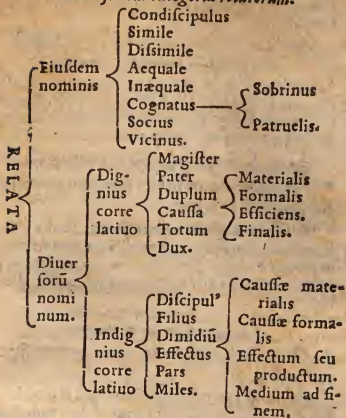 categoria relatorum.
RELATA
Eiuſdem
nominis
Condiſcipulus
Simile
Diſsimile
Aequale
Inæquale
Cognatus
Socius
Vicinus.
Sobrinus
Patruelis.
Diuer
ſorũ
nomi
num.
Dig-
nius
corre
latiuo
Magiſter
Pater
Duplum
Cauſſa
Totum
Dux.
Materialis
Formalis
Efficiens.
Finalis.
Indig
nius
corre
latiuo
Diſcipulꝰ
Filius
Dimidiũ
Effectus
Pars
Miles.
Cauſſæ mate-
rialis
Cauſſæ forma-
lis
Effectum ſeu
productum.
Medium ad fi-
nem.